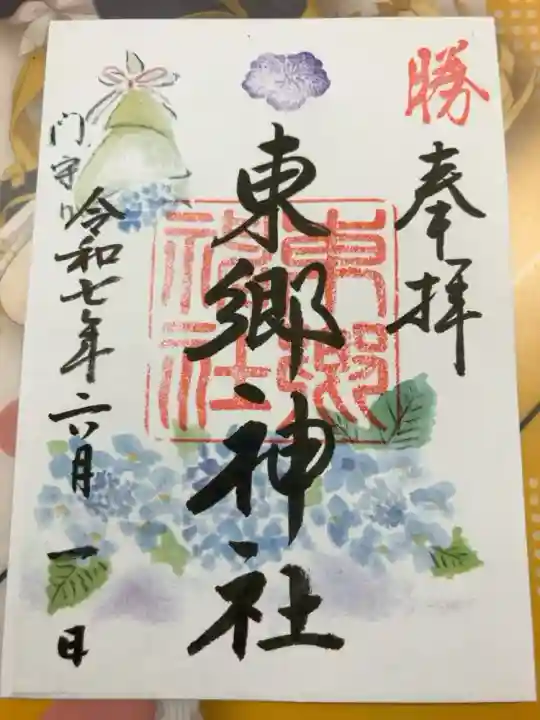 勝
奉拝
東郷神社
東郷神社
门守り
令和七年六月一日